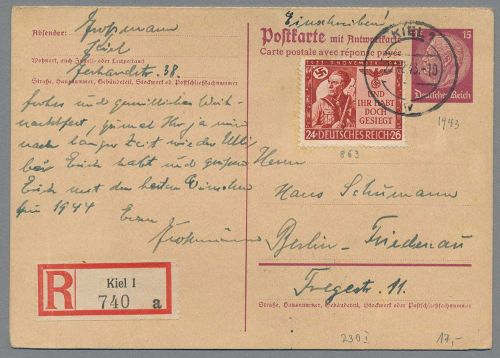 Absender: Großmann
Kiel
Wohnort, auch Zustell- oder Leitpostamt
38.
Straße, Hausnummer, Gebäudeteil, Stockwerk od. Postschließfachnummer
frohes und gemütliches Weih-
nachtsfest,
nach langer Zeit wieder
Euch habt und grüßen
Euch mit den besten Wünschen
für 1944
Euer
Großmann
R
Kiel 1
740 a
Einschreiben!
Postkarte mit Antwortkarte
Carte postale avec réponse payée
KIEL 1
15
Deutsches Reich
1943
1923 9. NOVEMBER
UND
IHR HABT
DOCH
GESIEGT
24+DEUTSCHES REICH+26
863
Herrn
Hans Schümann
Berlin-Friedenau
Fregestr. 11.
Straße, Hausnummer, Gebäudeteil, Stockwerk oder Postschließfachnummer
230 I
17,-